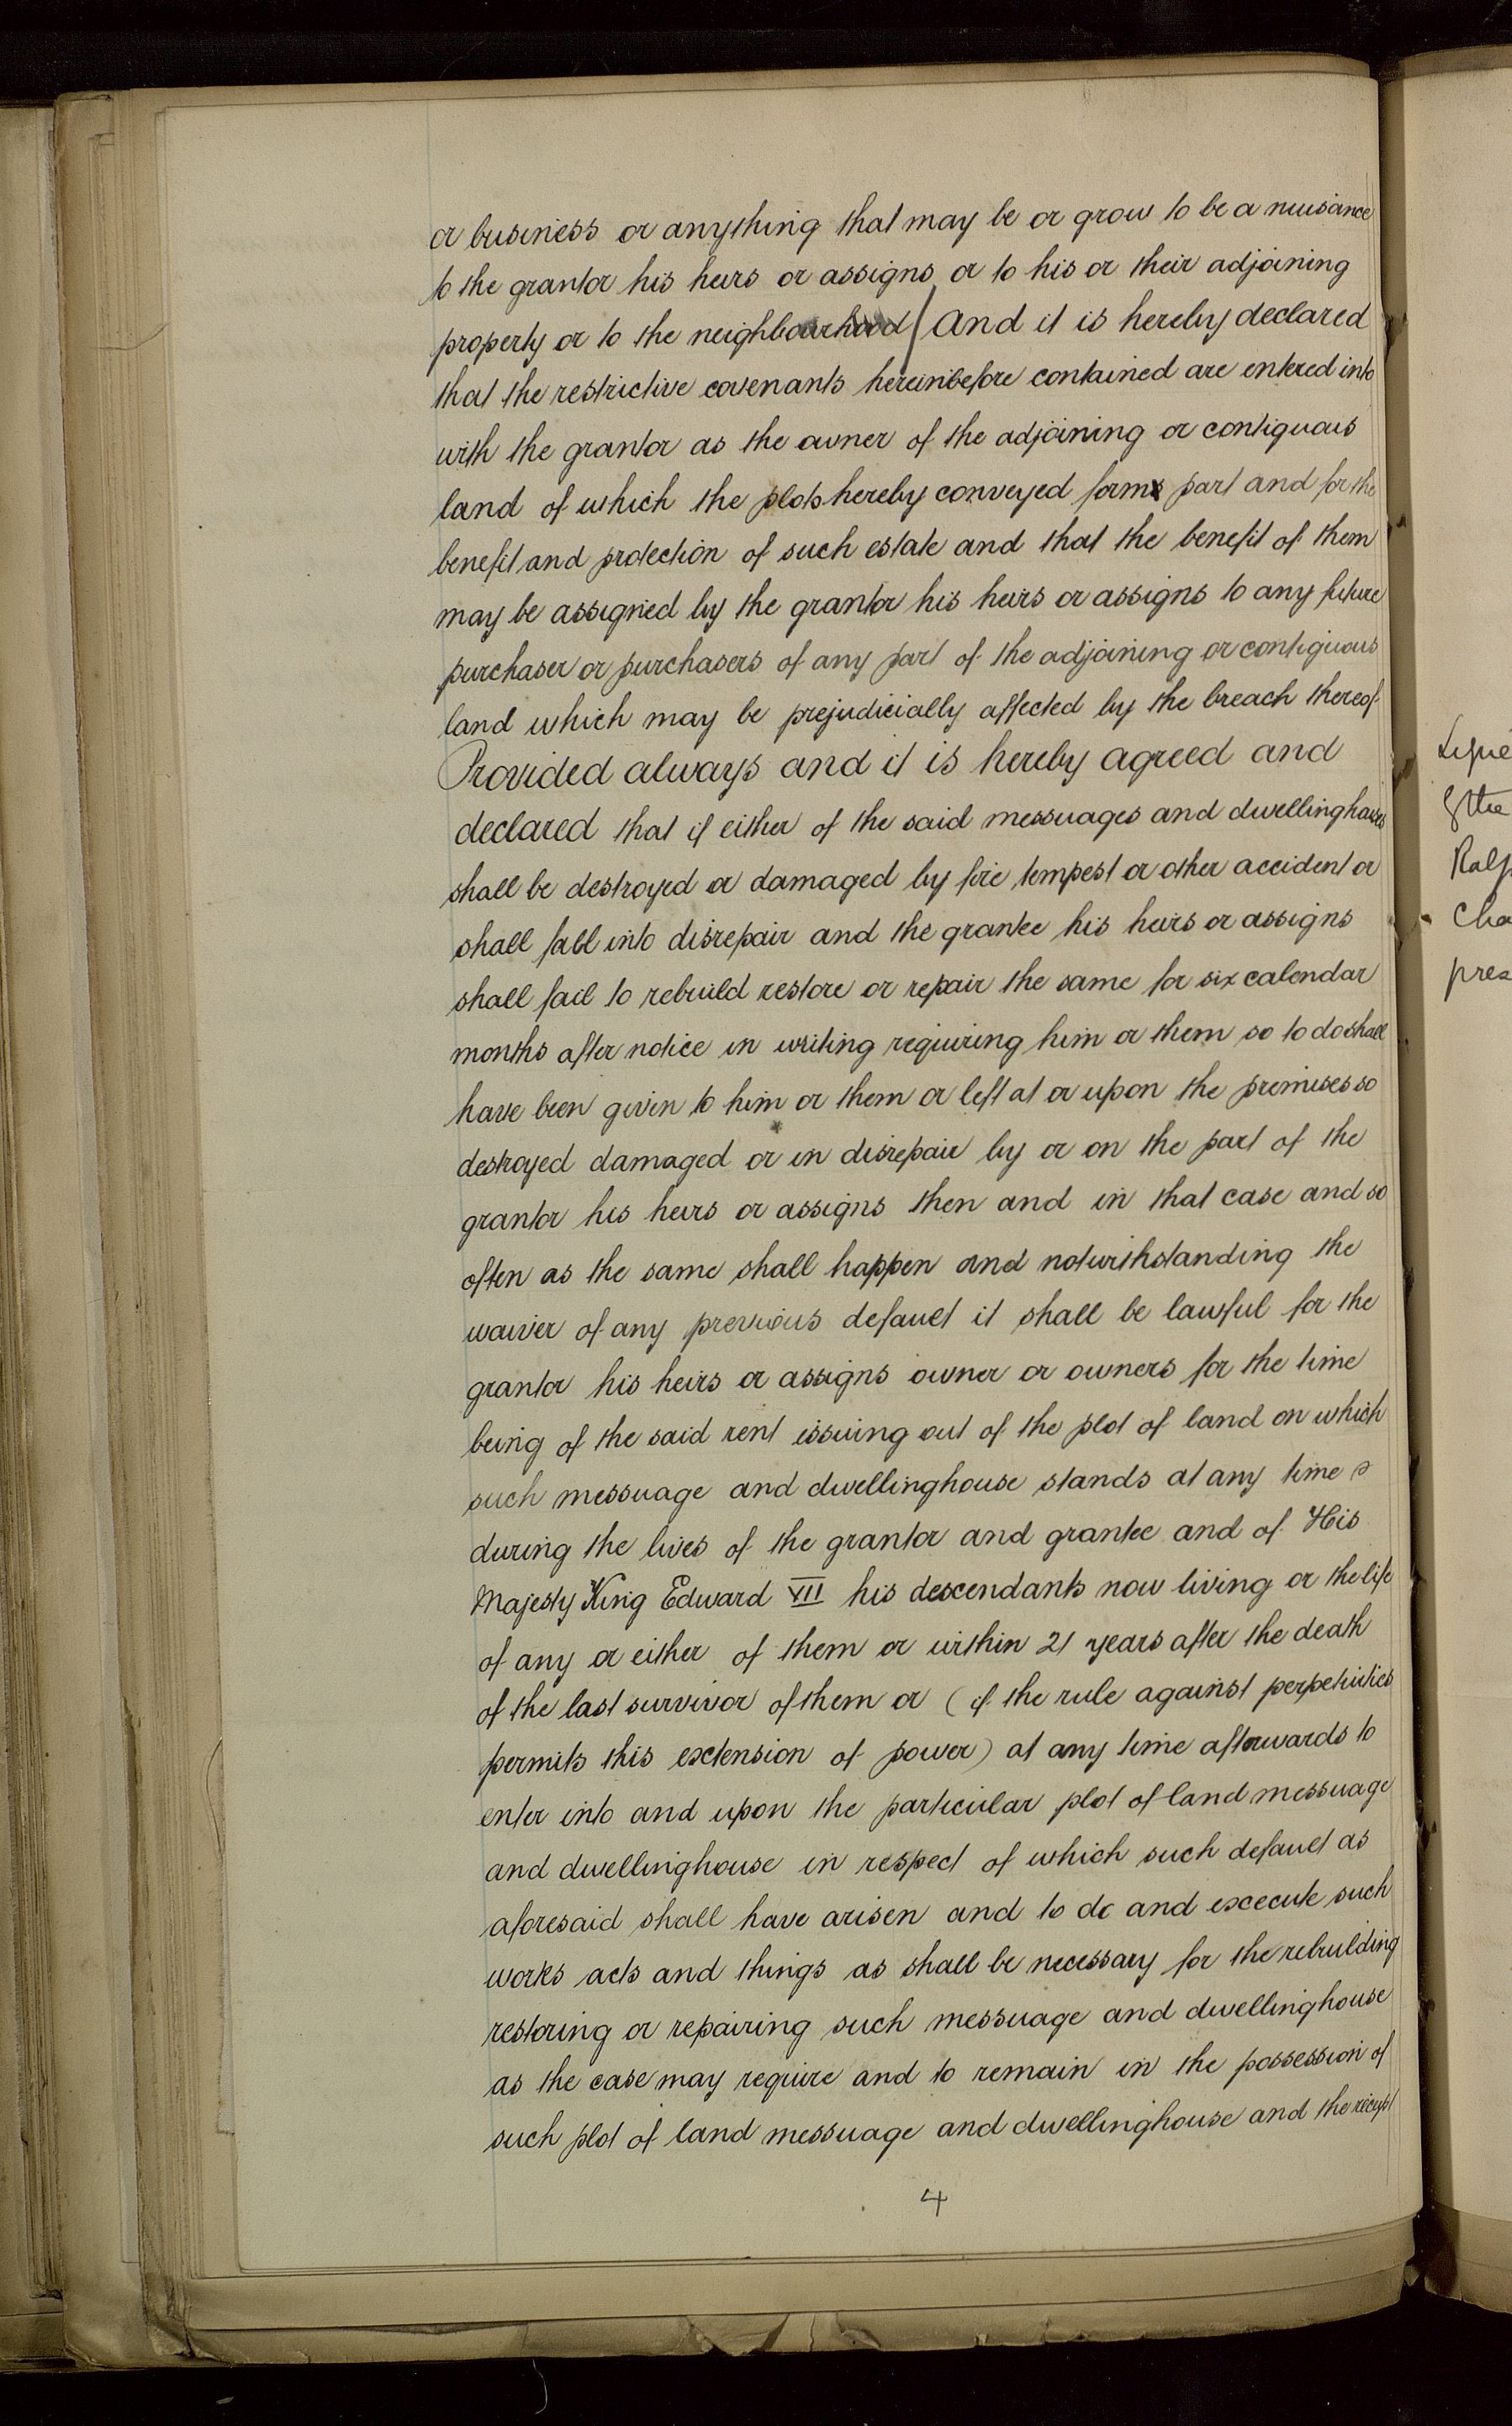 or business or anything that may be or grow to be a nuisance
to the grantor his heirs or assigns or to his or their adjoining
property or to the neighbourhood And it is hereby declared
that the restrictive covenants hereinbefore contained are entered into
with the grantor as the owner of the adjoining or contiguous
land of which the plots hereby conveyed form part and for the
benefit and protection of such estate and that the benefit of them
may be assigned by the grantor his heirs or assigns to any future
purchaser or purchasers of any part of the adjoining or contiguous
land which may be prejudicially affected by the breach thereof
Provided always and it is hereby agreed and
declared that if either of the said messuages and dwellinghouses
shall be destroyed or damaged by fire tempest or other accident or
shall fall into disrepair and the grantee his heirs or assigns
shall fail to rebuild restore or repair the same for six calendar
months after notice in writing requiring him or them so to do shall
have been given to him or them or left at or upon the premises so
destroyed damaged or in disrepair by or on the part of the
grantor his heirs or assigns then and in that case and so
often as the same shall happen and notwithstanding the
waiver of any previous default it shall be lawful for the
grantor his heirs or assigns owner or owners for the time
being of the said rent issuing out of the plot of land on which
such messuage and dwellinghouse stands at any time
during the lives of the grantor and grantee and of His
Majesty King Edward VII his descendants now living or the life
of any or either of them or within 21 years after the death
of the last survivor of them or (if the rule against perpetuities
permits this extension of power) at any time afterwards to
enter into and upon the particular plot of land messuage
and dwellinghouse in respect of which such default as
aforesaid shall have arisen and to do and excecute such
works acts and things as shall be necessary for the rebuilding
restoring or repairing such messuage and dwellinghouse
as the case may require and to remain in the possession of
such plot of land messuage and dwellinghouse and the receipt
4